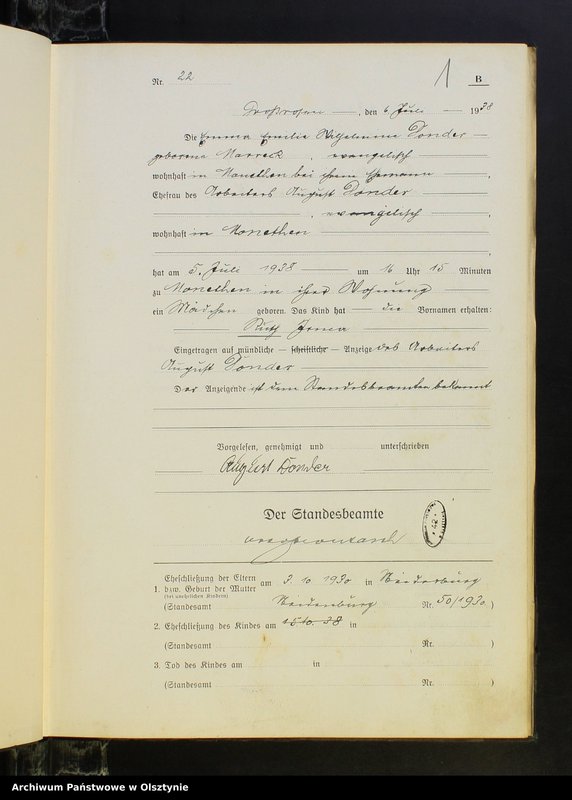 Nr. 22 1 B
Großrosen, den 6 Juli 1938
Die Emma Emilie Wilhelmine Donder
geborene, evangelisch
wohnhaft in Monethen bei ihrem Ehemann,
Ehefrau des Arbeiters August Donder
, evangelisch,
wohnhaft in Monethen
,
hat am 5. Juli 1938 um 16 Uhr 15 Minuten
zu Monethen in ihrer Wohnung
ein Mädchen geboren. Das Kind hat die Vornamen erhalten:
Ruth Irma
Eingetragen auf mündliche – schriftliche – Anzeige des Arbeiters
August Donder
Der Anzeigende ist dem Standesbeamten bekannt
Vorgelesen, genehmigt und unterschrieben
August Donder
Der Standesbeamte
42
1. Eheschließung der Eltern am 3. 10 1930 in Neidenburg
bzw. Geburt der Mutter
(bei unehelichen Kindern)
(Standesamt Neidenburg Nr. 50/1930.)
2. Eheschließung des Kindes am 15.10.38 in
(Standesamt Nr. )
3. Tod des Kindes am in
(Standesamt Nr. )
Archiwum Państwowe w Olsztynie